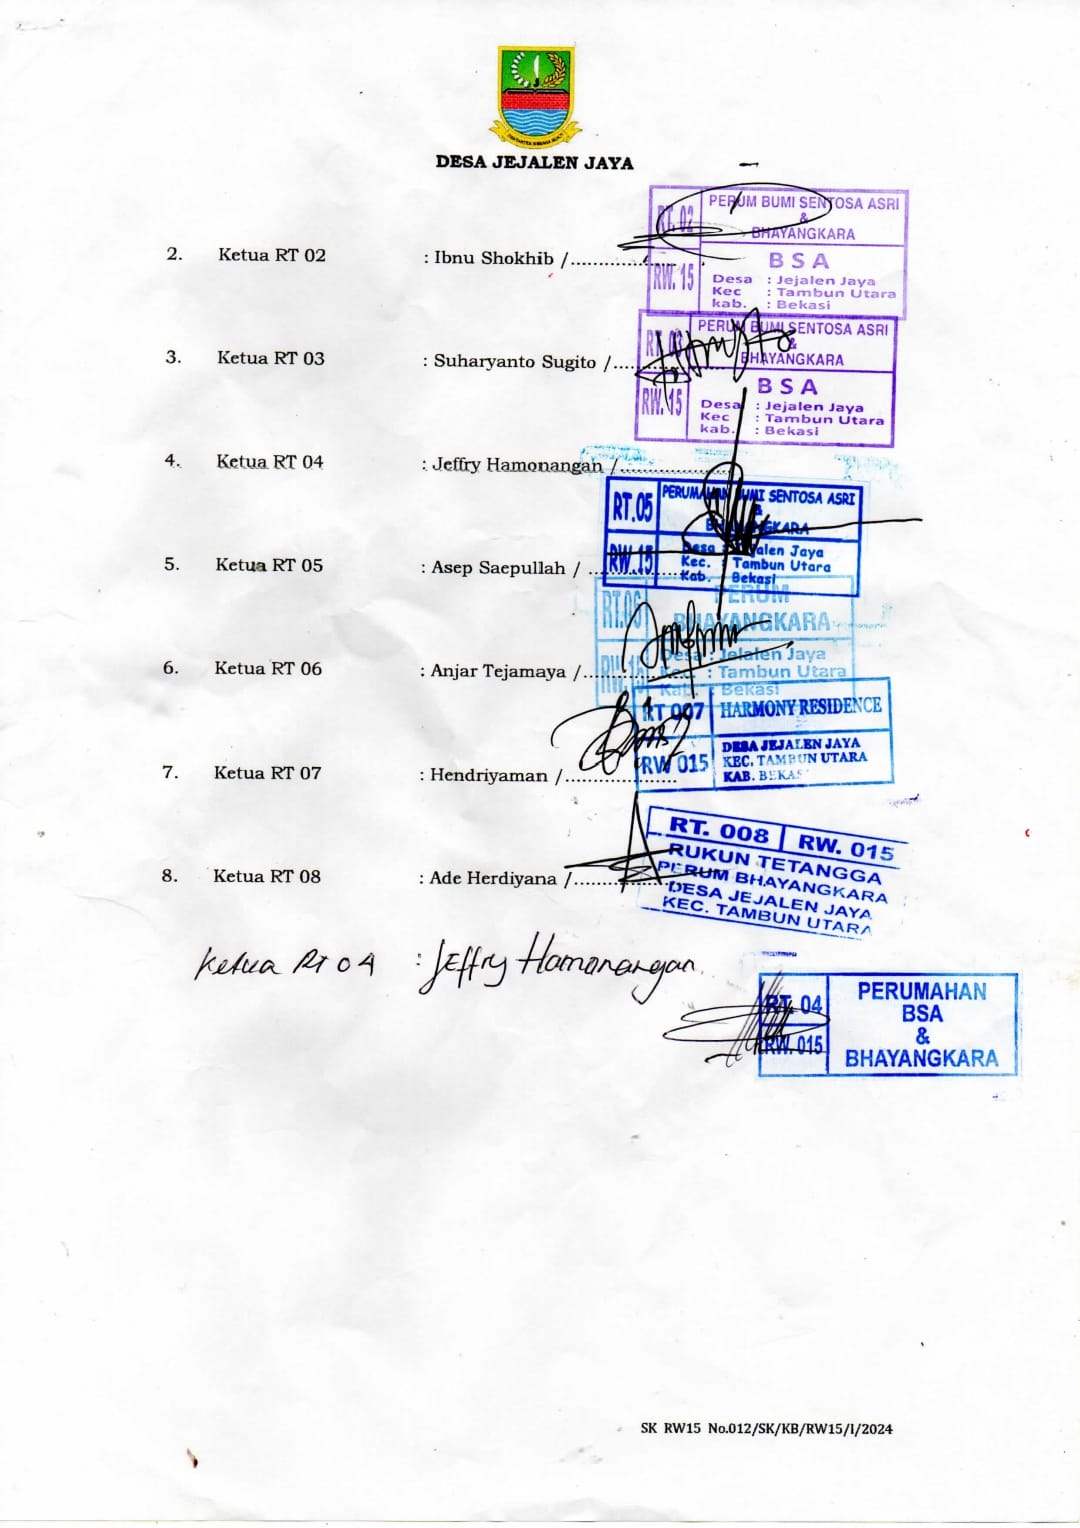 DESA JEJALEN JAYA
2. Ketua RT 02 : Ibnu Shokhib /..................
RT. 02
PERUM BUMI SENTOSA ASRI
&
BHAYANGKARA
RW. 15
B S A
Desa : Jejalen Jaya
Kec : Tambun Utara
kab. : Bekasi
3. Ketua RT 03 : Suharyanto Sugito /..................
RT. 03
PERUM BUMI SENTOSA ASRI
&
BHAYANGKARA
RW. 15
B S A
Desa : Jejalen Jaya
Kec : Tambun Utara
kab. : Bekasi
4. Ketua RT 04 : Jeffry Hamonangan /..................
RT.05
PERUMAHAN BUMI SENTOSA ASRI
&
BHAYANGKARA
RW.15
Desa : Jejalen Jaya
Kec. : Tambun Utara
Kab. : Bekasi
5. Ketua RT 05 : Asep Saepullah / ..................
RT.06
PERUM
BHAYANGKARA
RW.15
Desa : Jejalen Jaya
Kec. : Tambun Utara
Kab. : Bekasi
6. Ketua RT 06 : Anjar Tejamaya /..................
RT 007
HARMONY RESIDENCE
RW 015
DESA JEJALEN JAYA
KEC. TAMBUN UTARA
KAB. BEKASI
7. Ketua RT 07 : Hendriyaman /..................
RT. 008 RW. 015
RUKUN TETANGGA
PERUM BHAYANGKARA
DESA JEJALEN JAYA
KEC. TAMBUN UTARA
8. Ketua RT 08 : Ade Herdiyana /..................
Ketua RT 04 : Jeffry Hamonangan.
RT. 04
RW. 015
PERUMAHAN
BSA
&
BHAYANGKARA
SK RW15 No.012/SK/KB/RW15/I/2024